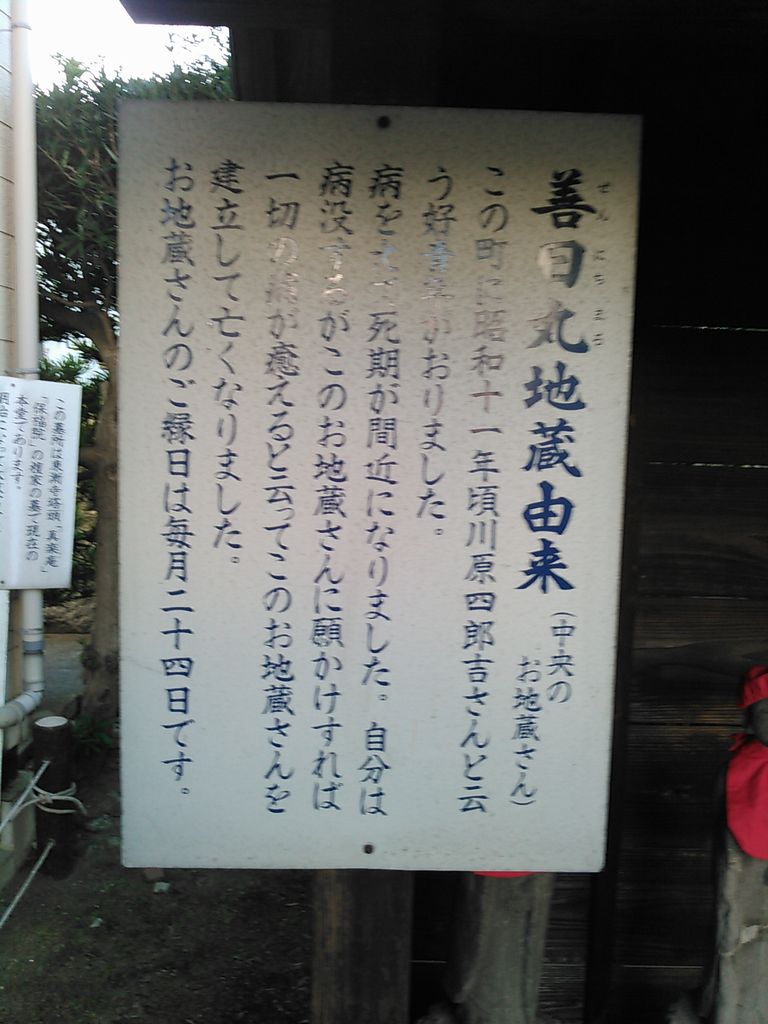 善日丸地蔵由来
ぜんにちまる
(中央の
お地蔵さん)
この町に昭和十一年頃川原四郎吉さんと云
う好青年がおりました。
病を 死期が間近になりました。自分は
病没するがこのお地蔵さんに願かけすれば
一切の病が癒えると云ってこのお地蔵さんを
建立して亡くなりました。
お地蔵さんのご縁日は毎月二十四日です。
この墓所は東 寺塔頭「真楽庵」
「保福院」の檀家の墓で現在の
本堂であります。